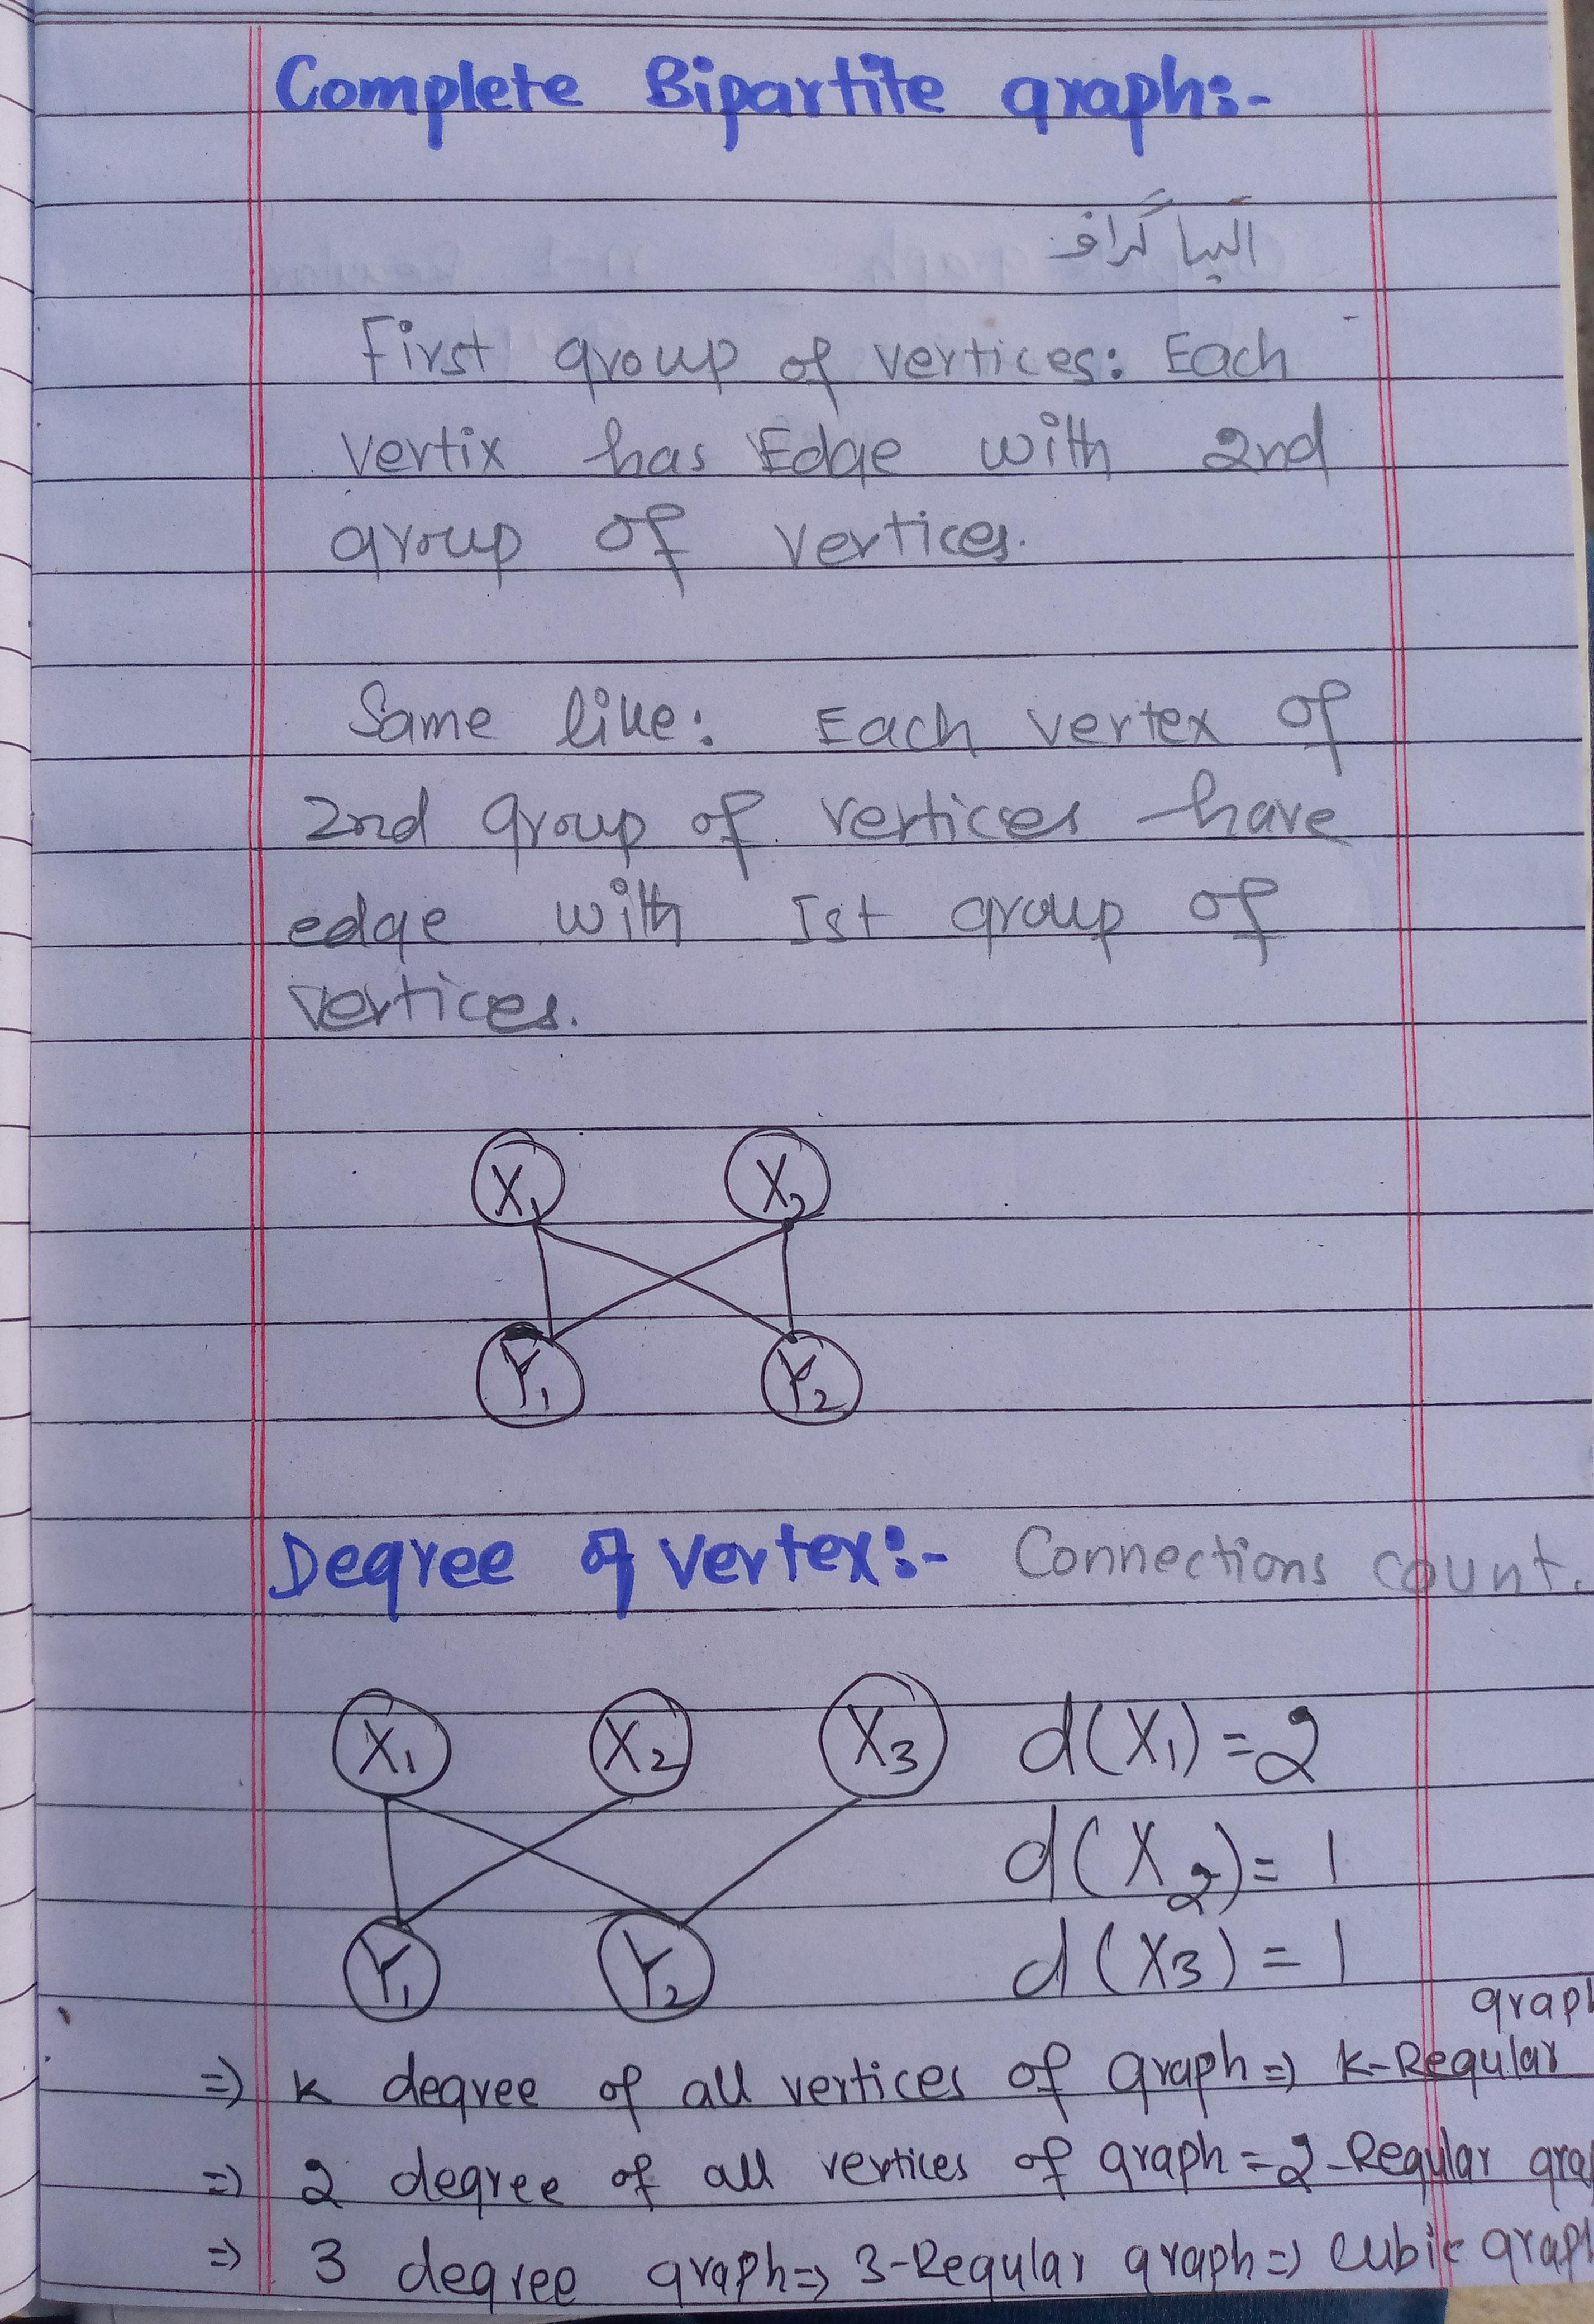 Complete Bipartite graph:-
ایسا گراف
First group of vertices: Each
vertix has Edge with 2nd
group of vertices.
Same like: Each vertex of
2nd group of vertices have
edge with Ist group of
vertices.
X1 X2
Y1 Y2
Degree of vertex:- Connections count.
X1 X2 X3 d(X1)=2
d(X2)=1
Y1 Y2 d(X3)=1
graph
=> K degree of all vertices of graph=> K-Regular
=> 2 degree of all vertices of graph=2-Regular gra
=> 3 degree graph=> 3-Regular graph=> cubic graph